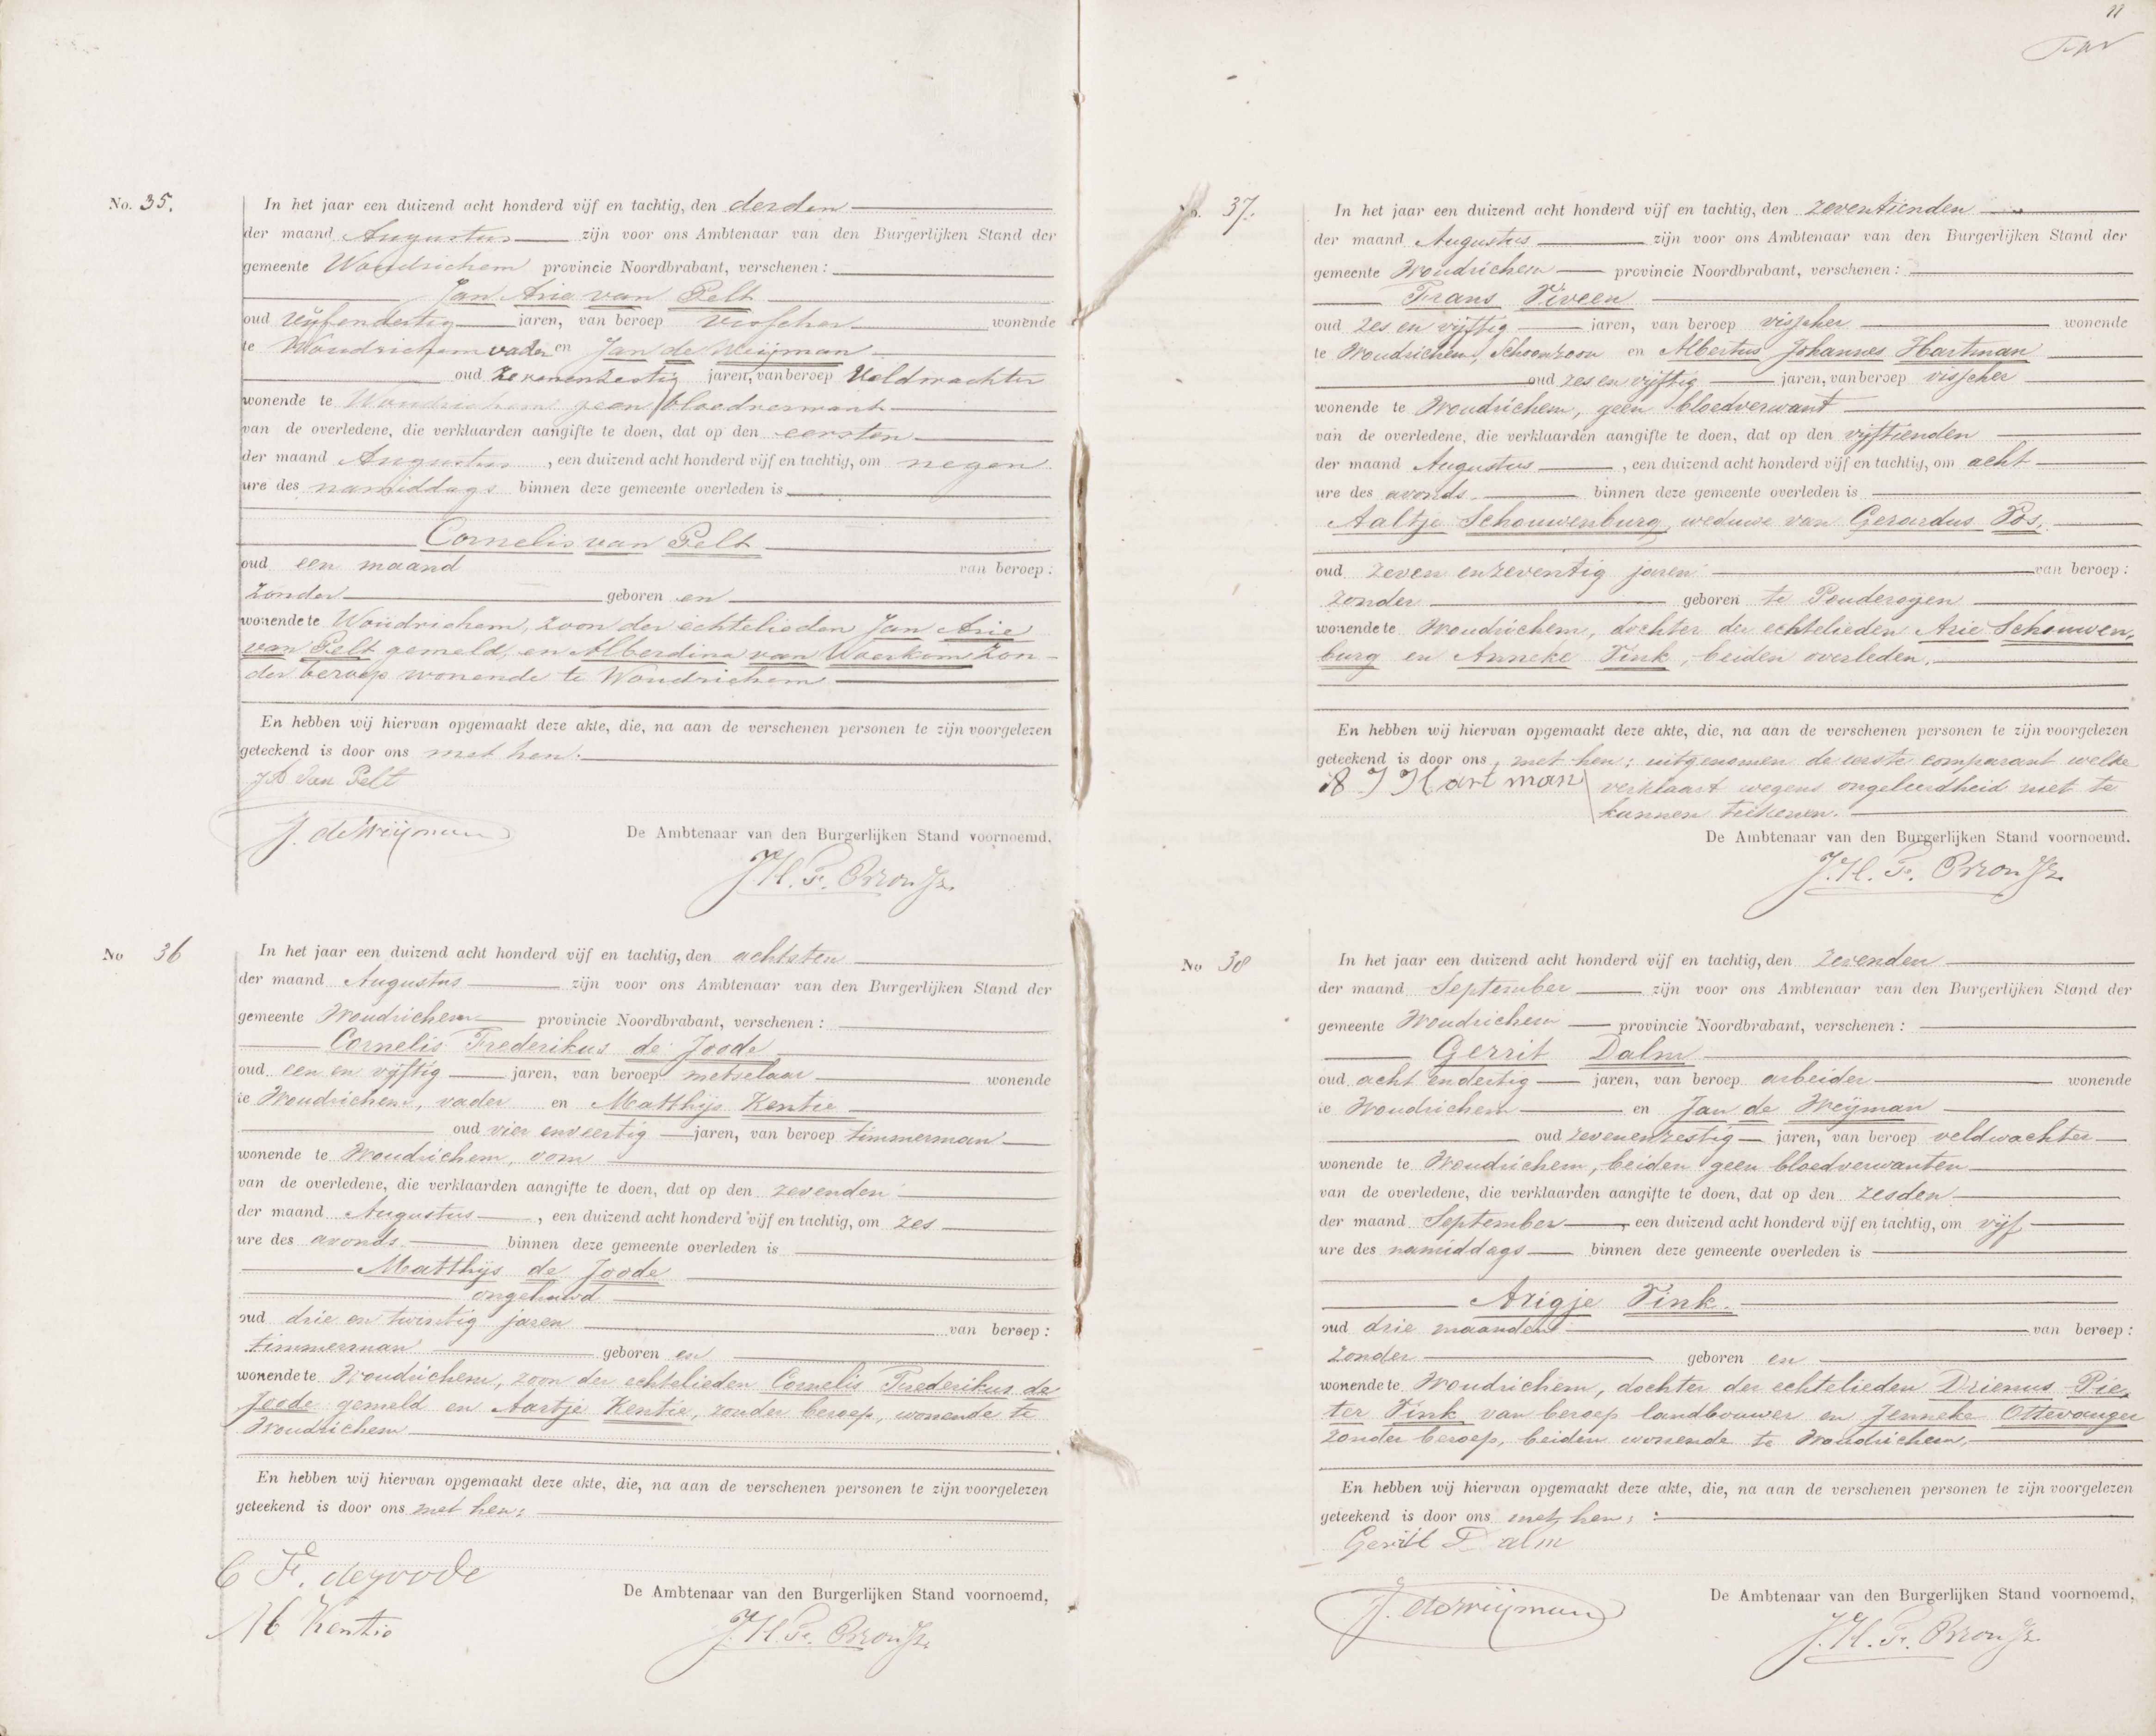 11
No. 35.
In het jaar een duizend acht honderd vijf en tachtig, den derden
der maand Augustus zijn voor ons Ambtenaar van den Burgerlijken Stand der
gemeente Woudrichem provincie Noordbrabant, verschenen:
Jan Arie van Pelt
oud vijfendertig jaren, van beroep visscher wonende
te Woudrichem vader en Jan de Weijman
oud zevenenzestig jaren, van beroep Veldwachter
wonende te Woudrichem geen bloedverwant
van de overledene, die verklaarden aangifte te doen, dat op den eersten
der maand Augustus, een duizend acht honderd vijf en tachtig, om negen
ure des namiddags binnen deze gemeente overleden is
Cornelis van Pelt
oud een maand van beroep:
zonder geboren en
wonende te Woudrichem, zoon der echtelieden Jan Arie
van Pelt gemeld, en Alberdina van Woerkom zon-
der beroep wonende te Woudrichem
En hebben wij hiervan opgemaakt deze akte, die, na aan de verschenen personen te zijn voorgelezen
geteekend is door ons met hen.
JA Van Pelt
J. de Weijman
De Ambtenaar van den Burgerlijken Stand voornoemd.
No 36
In het jaar een duizend acht honderd vijf en tachtig, den achtsten
der maand Augustus zijn voor ons Ambtenaar van den Burgerlijken Stand der
gemeente Woudrichem provincie Noordbrabant, verschenen:
Cornelis Frederikus de Joode
oud een en vijftig jaren, van beroep metselaar wonende
te Woudrichem, vader en Matthijs Kentie
oud vier enveertig jaren, van beroep timmerman
wonende te Woudrichem, oom
van de overledene, die verklaarden aangifte te doen, dat op den zevenden
der maand Augustus, een duizend acht honderd vijf en tachtig, om zes
ure des avonds binnen deze gemeente overleden is
Matthijs de Joode
ongehuwd
oud drie en twintig jaren van beroep:
timmerman geboren en
wonende te Woudrichem, zoon der echtelieden Cornelis Frederikus de
Joode gemeld en Aartje Kentie, zonder beroep, wonende te
Woudrichem
En hebben wij hiervan opgemaakt deze akte, die, na aan de verschenen personen te zijn voorgelezen
geteekend is door ons met hen:
C F. de joode
M Kentie
De Ambtenaar van den Burgerlijken Stand voornoemd,
No. 37.
In het jaar een duizend acht honderd vijf en tachtig, den zeventienden
der maand Augustus zijn voor ons Ambtenaar van den Burgerlijken Stand der
gemeente Woudrichem provincie Noordbrabant, verschenen:
Frans Viveen
oud zes en vijftig jaren, van beroep visscher wonende
te Woudrichem, Schoonzoon en Albertus Johannes Hartman
oud zes en vijftig jaren, van beroep visscher
wonende te Woudrichem, geen bloedverwant
van de overledene, die verklaarden aangifte te doen, dat op den vijftienden
der maand Augustus, een duizend acht honderd vijf en tachtig, om acht
ure des avonds binnen deze gemeente overleden is
Aaltje Schouwenburg, weduwe van Gerardus Pos,
oud zeven enzeventig jaren van beroep:
zonder geboren te Poederoyen
wonende te Woudrichem, dochter der echtelieden Arie Schouwen,
burg en Anneke Vink, beiden overleden.
En hebben wij hiervan opgemaakt deze akte, die, na aan de verschenen personen te zijn voorgelezen
geteekend is door ons, met hen; uitgenomen de eerste comparant welke
A J Hartman verklaart wegens ongeleerdheid niet te
kunnen teekenen.
De Ambtenaar van den Burgerlijken Stand voornoemd.
No 38
In het jaar een duizend acht honderd vijf en tachtig, den zevenden
der maand September zijn voor ons Ambtenaar van den Burgerlijken Stand der
gemeente Woudrichem provincie Noordbrabant, verschenen:
Gerrit Dalm
oud acht endertig jaren, van beroep arbeider wonende
te Woudrichem en Jan de Weijman
oud zevenenzestig jaren, van beroep veldwachter
wonende te Woudrichem, beiden geen bloedverwanten
van de overledene, die verklaarden aangifte te doen, dat op den zesden
der maand September, een duizend acht honderd vijf en tachtig, om vijf
ure des namiddags binnen deze gemeente overleden is
Arigje Vink.
oud drie maanden van beroep:
zonder geboren en
wonende te Woudrichem, dochter der echtelieden Drienus Pie,
ter Vink van beroep landbouwer en Jenneke Ottevanger
zonder beroep, beiden wonende te Woudrichem,
En hebben wij hiervan opgemaakt deze akte, die, na aan de verschenen personen te zijn voorgelezen
geteekend is door ons met hen;
Gerrit Dalm
J. de Weijman
De Ambtenaar van den Burgerlijken Stand voornoemd,